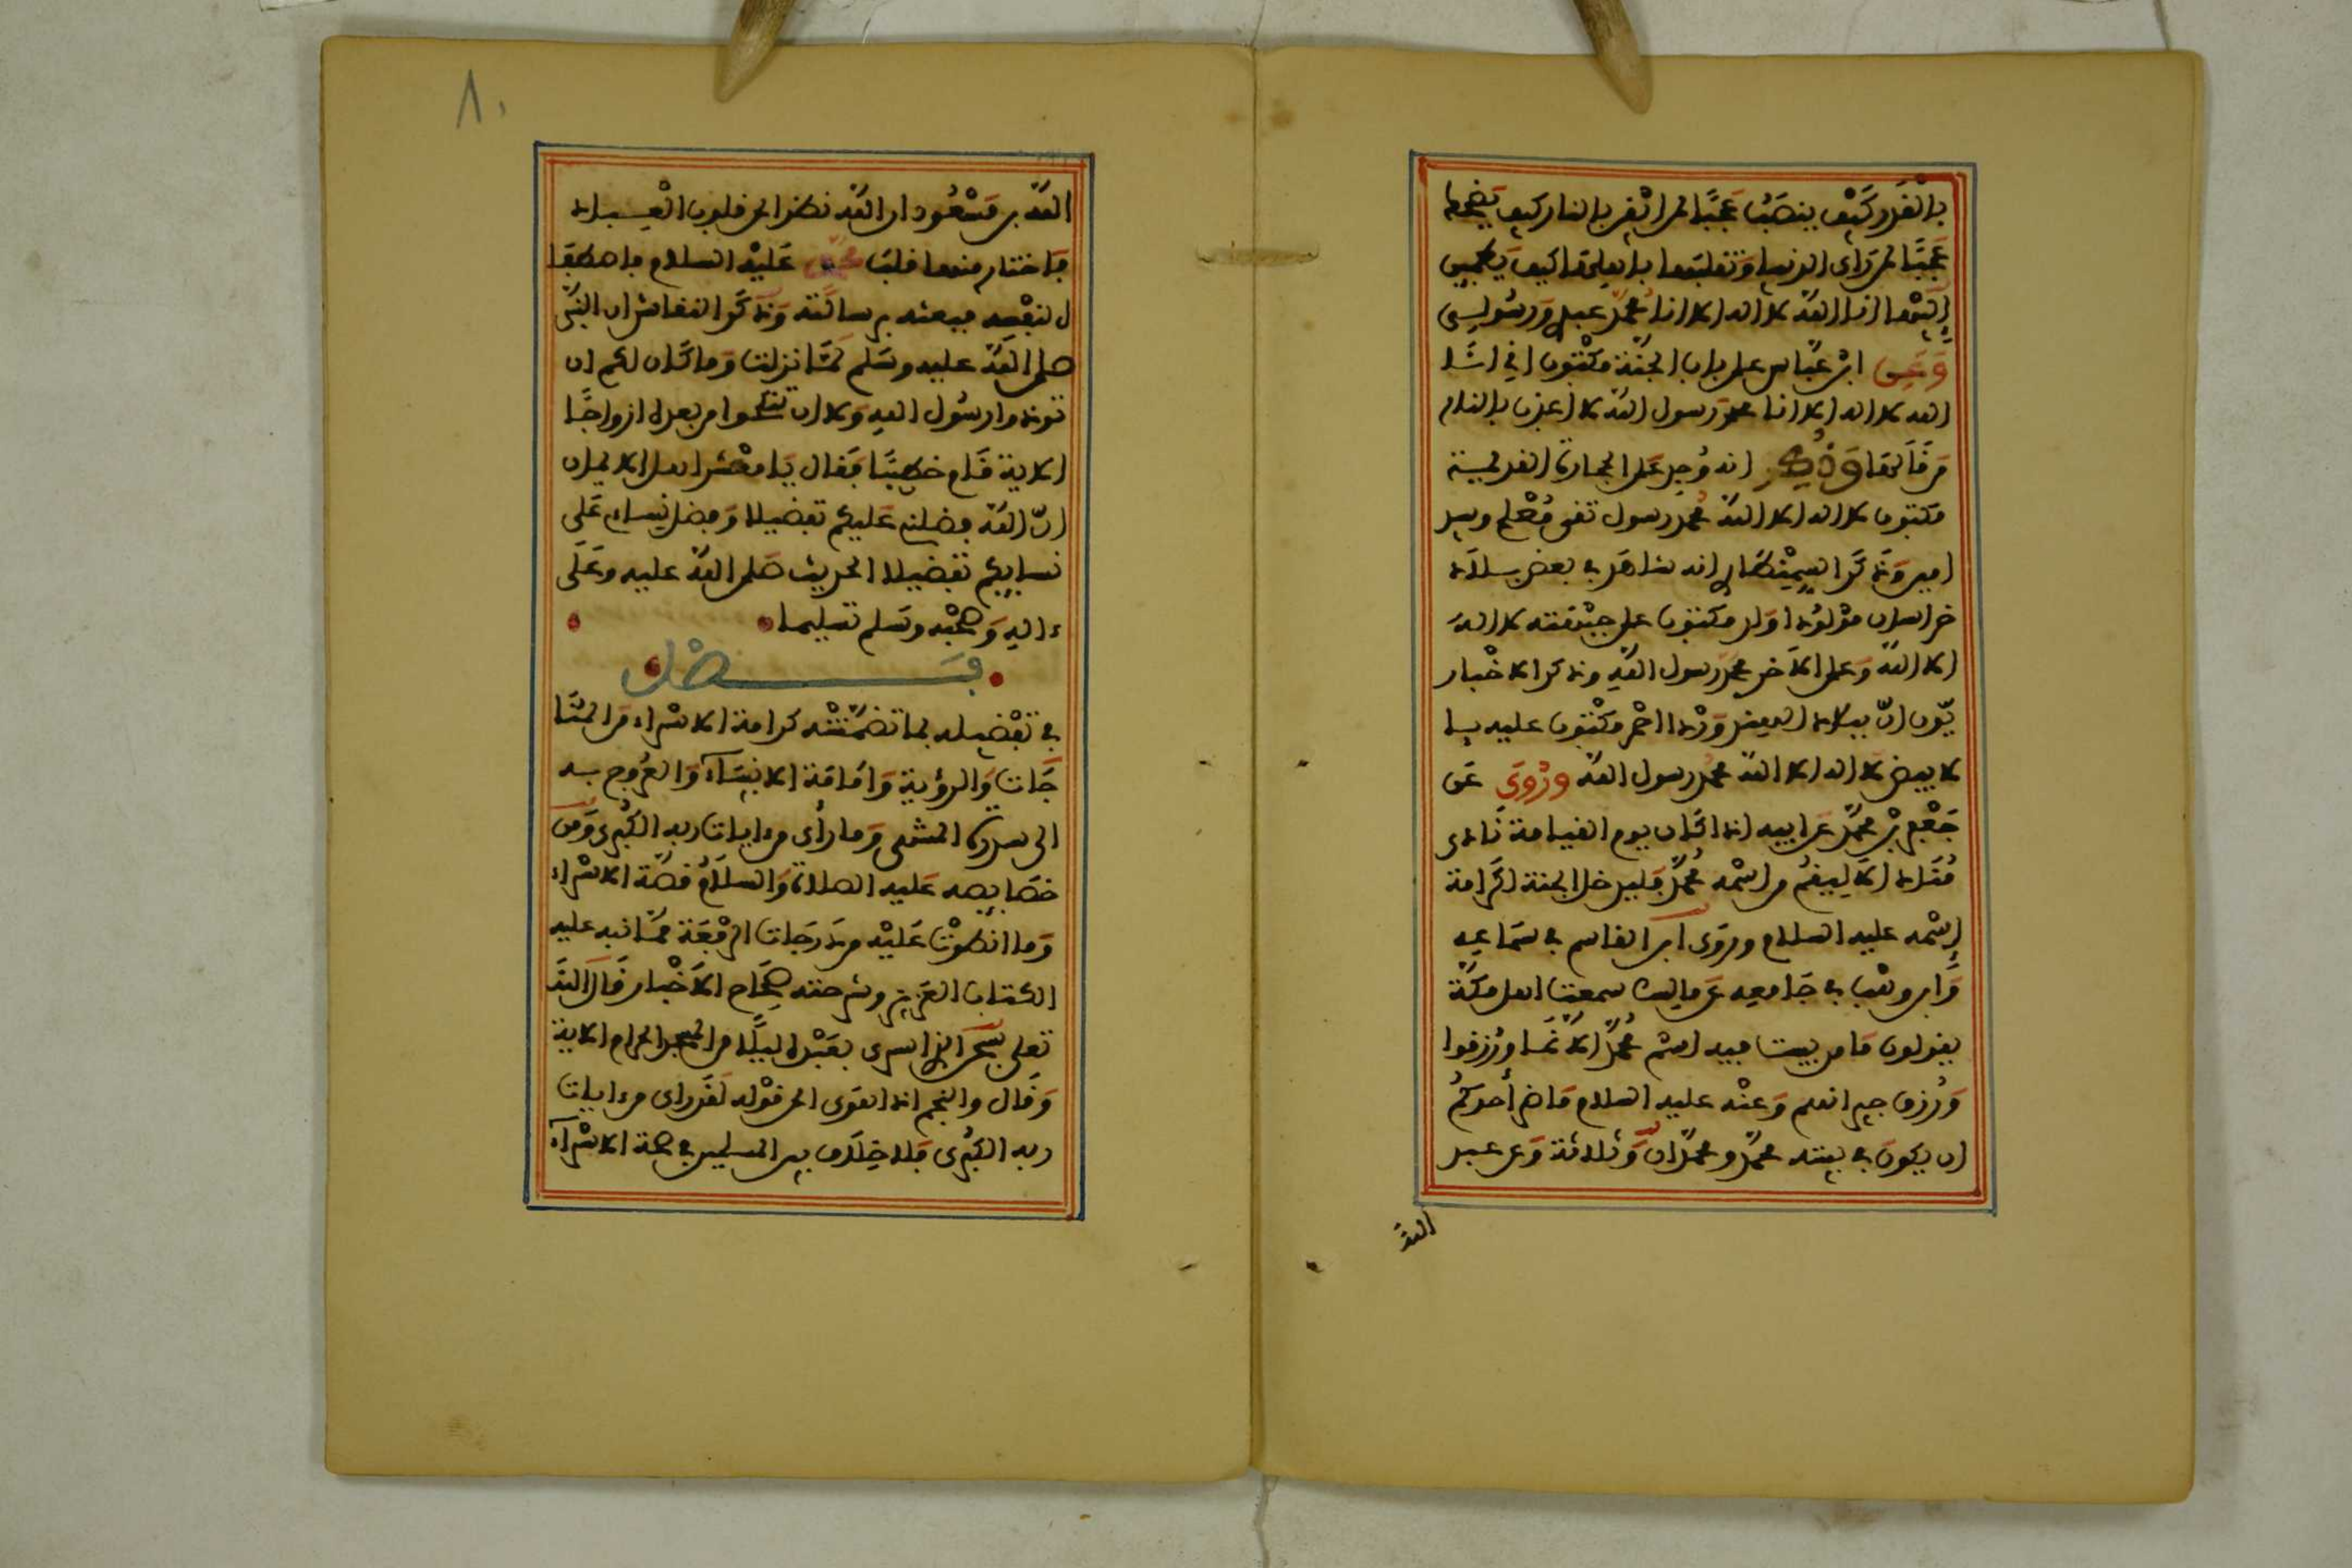 بالقدر كيف ينصب عجبا لمن ايقن بالنار كيف يضحك
عجبا لمن راى الدنيا وتقلبها باهلها كيف يطمين
اليها انا الله لا اله الا انا محمد عبدي ورسولي
وعن ابن عباس على باب الجنة مكتوب اني انا
الله لا اله الا انا محمد رسول الله لا اعذب بالنار
من قالها وذكر انه وجد على الحجارة القديمة
مكتوب لا اله الا الله محمد رسول تقي مصلح وسيد
امين وذكر السمنطاري انه شاهد في بعض بلاد
خراسان مولودا ولد مكتوب على جنبه لا اله
الا الله وعلى الاخر محمد رسول الله وذكر الاخبار
يون ان ببلاد الهند وردا احمر مكتوب عليه با
لابيض لا اله الا الله محمد رسول الله وروي عن
جعفر بن محمد عن ابيه اذا كان يوم القيامة نادى
مناد الا ليقم من اسمه محمد فليدخل الجنة لكرامة
اسمه عليه السلام وروى ابن القاسم في سماعه
وابن وهب في جامعه عن مالك سمعت اهل مكة
يقولون ما من بيت فيه اسم محمد الا نما ورزقوا
ورزق جيرانهم وعنه عليه السلام ما ضر أحدكم
ان يكون في بيته محمد ومحمدان وثلاثة وعن عبد
الله
٨٠
الله بن مسعود ان الله نظر الى قلوب العباد
فاختار منها قلب محمد عليه السلام فاصطفا
ه لنفسه فبعثه برسالته وذكر النقاش ان النبي
صلى الله عليه وسلم لما نزلت وما كان لكم ان
توذوا رسول الله ولا ان تنكحوا من بعده ازواجا
الاية قام خطيبا فقال يا معشر اهل الايمان
ان الله فضلني عليكم تفضيلا وفضل نساءي على
نسايكم تفضيلا الحديث صلى الله عليه وعلى
ءاله وصحبه وسلم تسليما
فصل
في تفضيله بما تضمنته كرامة الاسراء من المنا
جات والرؤية وامامة الانبياء والعروج به
الى سدرة المنتهى وما رأى من ءايات ربه الكبرى ومن
خصايصه عليه الصلاة والسلام قصة الاسراء
وما انطوت عليه من درجات الرفعة مما نبه عليه
الكتاب العزيز وشرحته صحاح الاخبار قال الله
تعلى سبحن الذي اسرى بعبده ليلا من المسجد الحرام الاية
وقال والنجم اذا هوى الى قوله لقد راى من ءايات
ربه الكبرى فلا خلاف بين المسلمين في صحة الاسراء